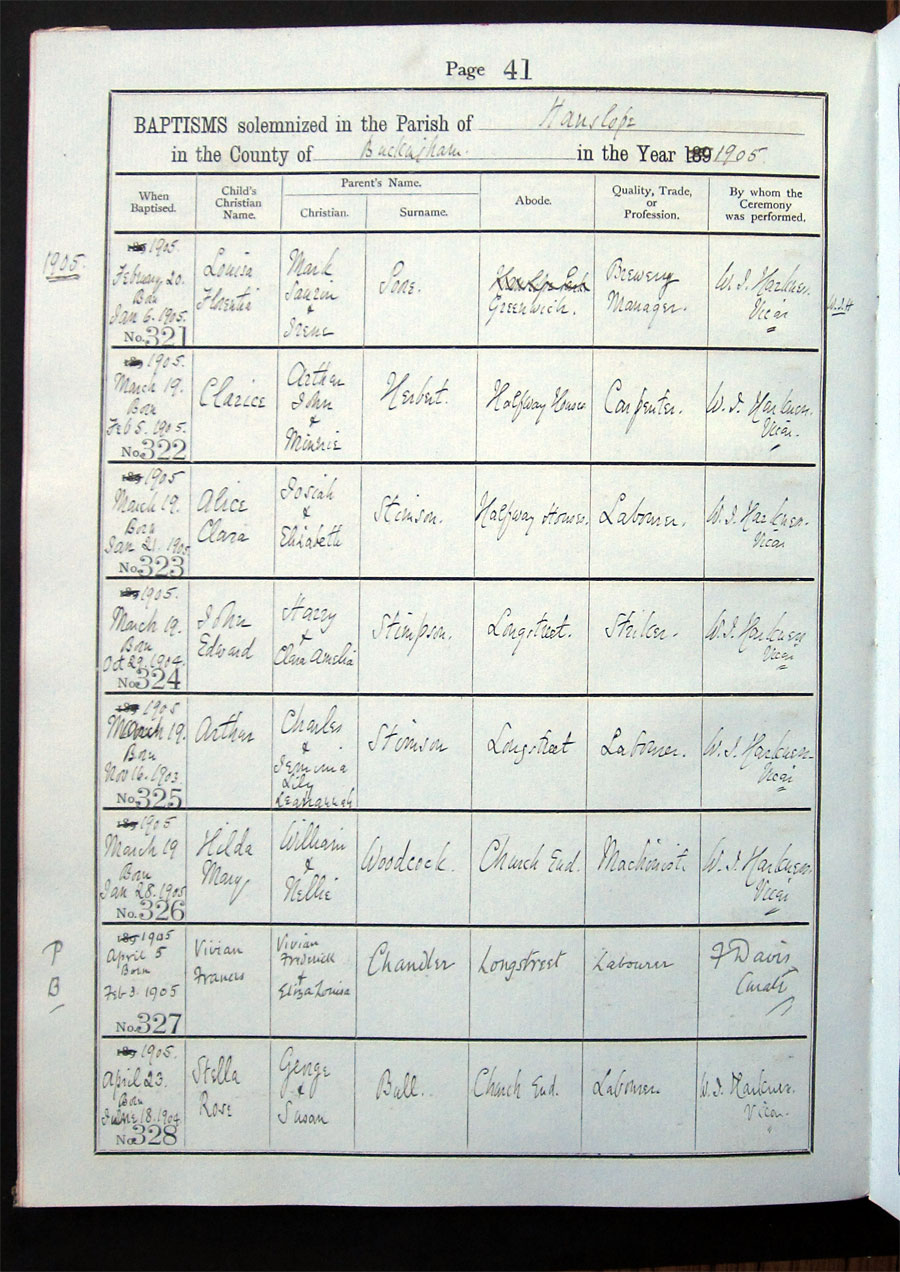 Page 41
BAPTISMS solemnized in the Parish of Hanslope
in the County of Buckingham. in the Year 189 1905.
When Baptised. Child's Christian Name. Parent's Name. Christian. Surname. Abode. Quality, Trade, or Profession. By whom the Ceremony was performed.
1905.
189 1905.
February 20.
Born
Jan 6. 1905.
No. 321
Louisa
Mark
&
Irene
Greenwich.
Brewery
Manager.
W. J. Harkness.
Vicar
W.J.H
189 1905.
March 19.
Born
Feb 5. 1905.
No. 322
Clarice
Arthur
John
&
Minnie
Herbert.
Halfway Houses
Carpenter.
W. J. Harkness.
Vicar.
189 1905
March 19.
Born
Jan 21. 1905
No. 323
Alice
Clara
Josiah
&
Elizabeth
Stimson.
Halfway Houses.
Labourer.
W. J. Harkness.
Vicar
189 1905.
March 19.
Born
Oct 29. 1904.
No. 324
John
Edward
Harry
&
Clara Amelia
Stimpson.
Longstreet.
Striker.
W. J. Harkness
Vicar
189 1905
March 19.
Born
Nov 16. 1903.
No. 325
Arthur
Charles
&
Jemima
Lily
Leahannah
Stimson
Longstreet
Labourer.
W. J. Harkness.
Vicar
189 1905
March 19
Born
Jan 28. 1905
No. 326
Hilda
Mary
William
&
Nellie
Woodcock.
Church End.
Machinist
W. J. Harkness.
Vicar
P
B
189 1905
April 5
Born
Feb 3. 1905
No. 327
Vivian
Francis
Vivian
Frederick
&
Eliza Louisa
Chandler
Longstreet
Labourer
F Davis
Curate
189 1905.
April 23.
Born
June 18. 1904
No. 328
Stella
Rose
George
&
Susan
Bull.
Church End.
Labourer.
W. J. Harkness.
Vicar.